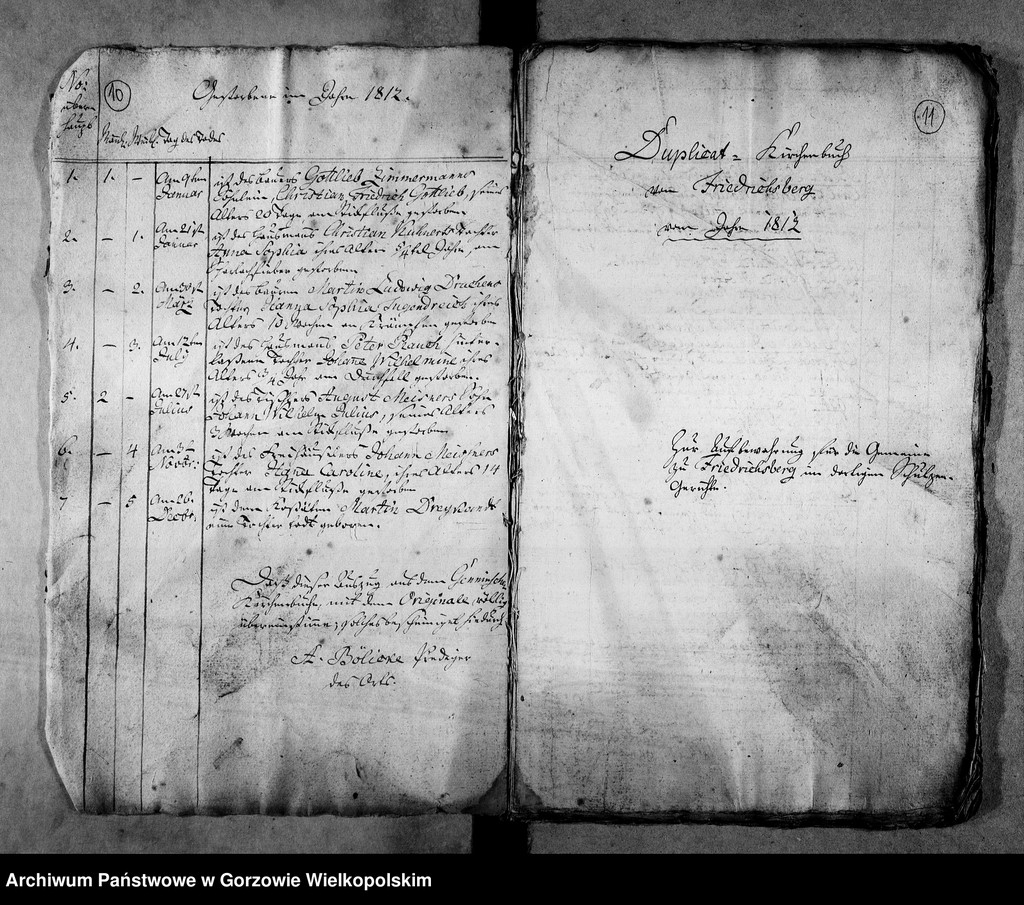 No:
übern
haupt
10
Gestorbene im Jahre 1812.
Männl. Weibl. Tag des Todes
1. 1. – Am 9ten Januar ist des Bauers Gottlieb Zimmermanns
Söhnlein, Christian Friedrich Gottlieb, seines
Alters 20 Tage, am Stickflusse gestorben
2. – 1. Am 21st Januar ist des Hausmanns Christian Kühnerts Tochter
Anna Sophia ihres Alters 5/4tel Jahr, am
gestorben
3. – 2. März ist des Bauern Martin Ludwig Drachens
Tochter Hanna Sophia ihres
Alters 10 Wochen an Krämpfen gestorben
4. – 3. Am 12ten July ist des Hausmanns, Peter Rauch hinter-
lassene Tochter Johane Wilhelmine ihres
Alters 3/4 Jahr am Durchfall gestorben.
5. 2 – Julius ist des Tischlers August Meisners Sohn
Johann Wilhelm Julius, seines Alters
3 Wochen am Stickflusse gestorben
6. – 4 Novbr. ist des Johann Meissners
Tochter Hane Caroline, ihres Alters 14
Tage am Stickflusse gestorben
7 – 5 Am 26. Decbr. ist dem Kossäten Martin
eine Tochter todt geboren.
Daß dieser Auszug aus dem Genninschen
Kirchenbuche, mit dem Originale völlig
übereinstimme, solches bescheiniget hierdurch
A. Bölicke Prediger
des Orts.
11
Duplicat = Kirchenbuch
von Friedrichsberg
vom Jahre 1812
Zur Aufbewahrung für die Gemeine
zu Friedrichsberg im dortigen Schulzen-
Gerichte.
Archiwum Państwowe w Gorzowie Wielkopolskim